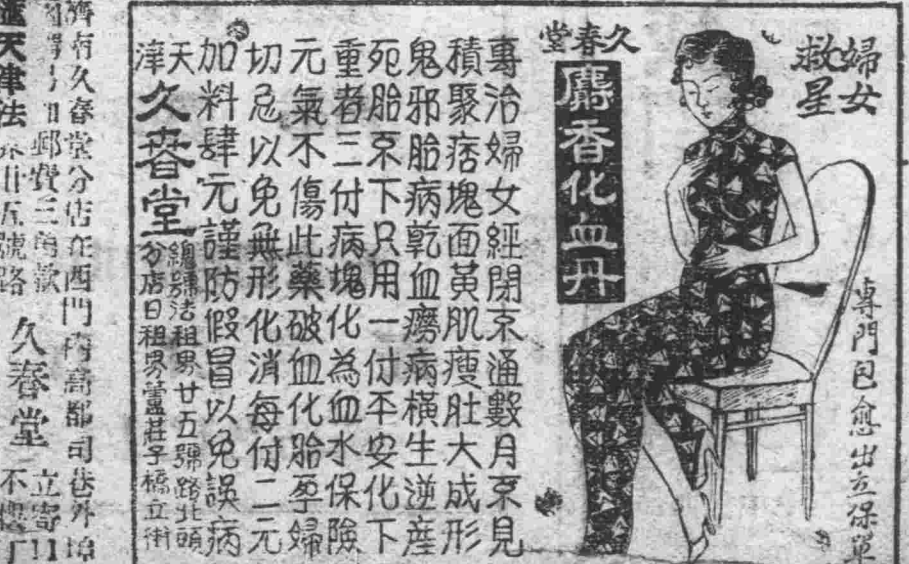 婦女
救星
專門包愈出立保單
久春堂
麝香化血丹
專治婦女經閉不通數月不見
積聚痞塊面黃肌瘦肚大成形
鬼邪胎病乾血癆病橫生逆產
死胎不下只用一付平安化下
重者三付病塊化為血水保險
元氣不傷此藥破血化胎孕婦
切忌以免無形化消每付二元
加料肆元謹防假冒以免誤病
天津久春堂
總號法租界廿五號路北頭
分店日租界蘆莊子橋立街
濟南久春堂分店在西門內高都司巷外埠
郵費三角款
立寄
天津法
五號路
久春堂